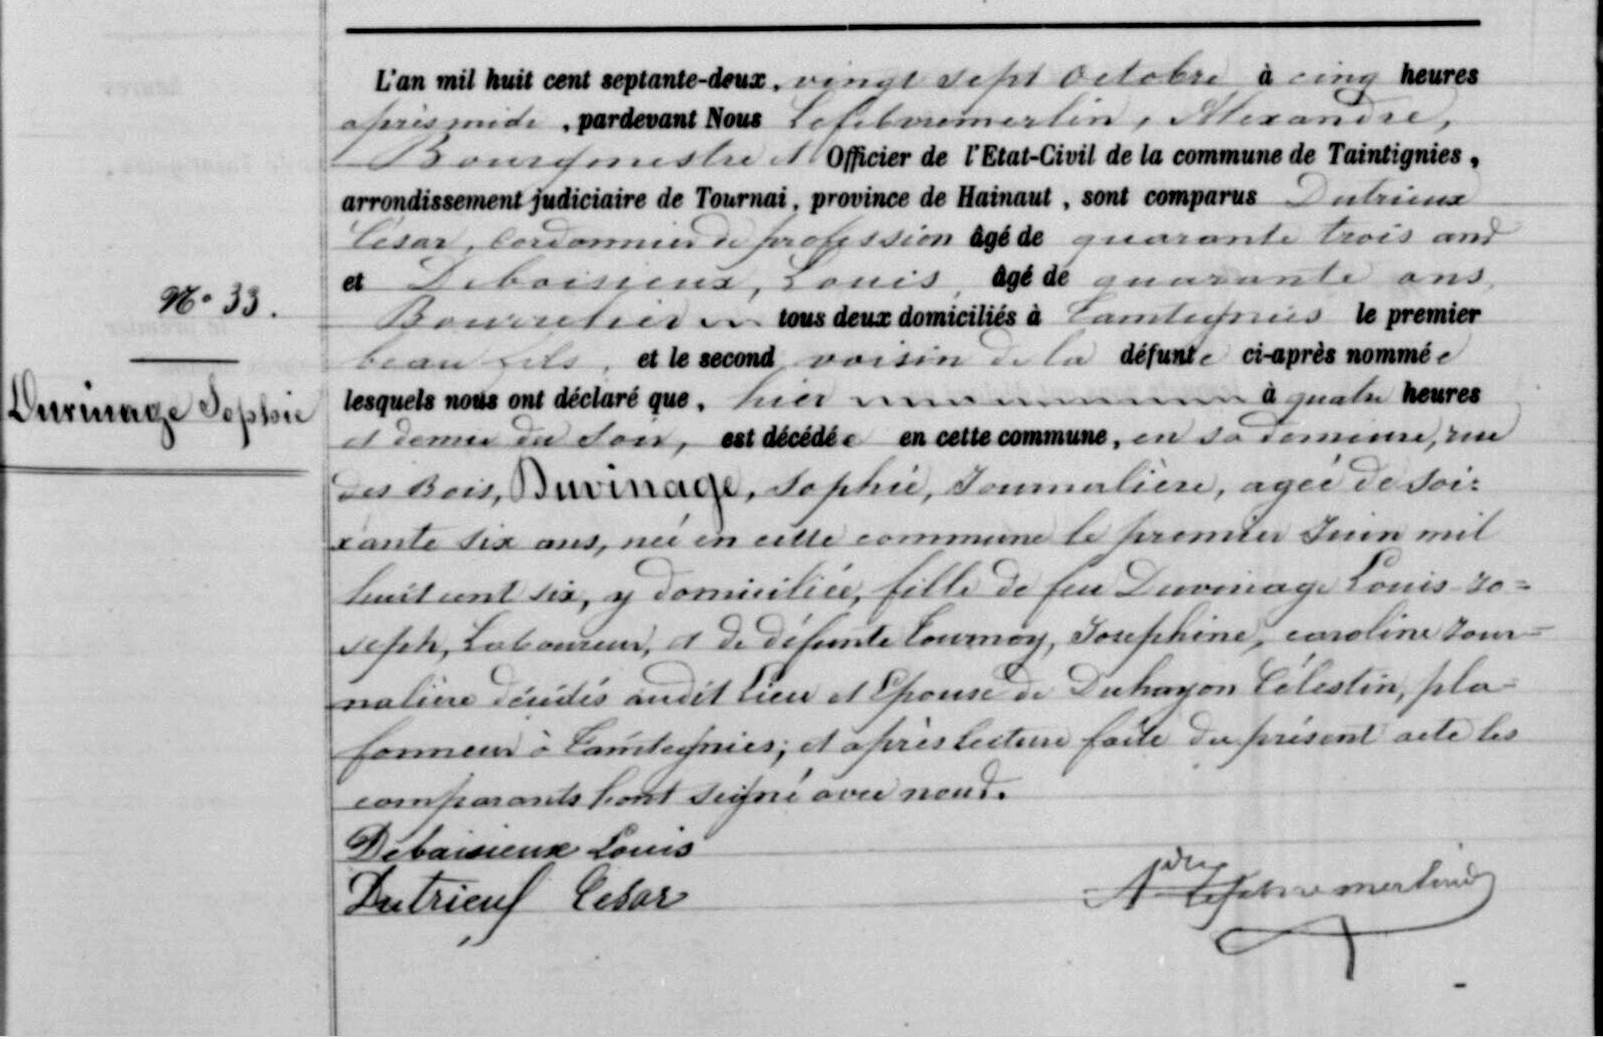 L'an mil huit cent septante-deux, vingt sept Octobre à cinq heures
après midi, pardevant Nous Lefebvremerlin, Alexandre,
Bourgmestre et Officier de l'Etat-Civil de la commune de Taintignies,
arrondissement judiciaire de Tournai, province de Hainaut, sont comparus Dutrieux
César, Cordonnier de profession âgé de quarante trois ans
et Debaisieux, Louis, âgé de quarante ans,
Bourrelier tous deux domiciliés à Taintegnies le premier
beau fils, et le second voisin de la défunte ci-après nommée
lesquels nous ont déclaré que, hier à quatre heures
et demie du soir, est décédée en cette commune, en sa demeure, rue
des Bois, Duvinage, Sophie, Journalière, agée de soi=
xante six ans, née en cette commune le premier Juin mil
huit cent six, y domiciliée, fille de feu Duvinage Louis Jo=
seph, Laboureur, et de défunte Tournoy, Josephine, caroline Jour=
nalière décédés audit Lieu et Epouse de Duhayon Célestin, pla=
fonneur à Taintegnies; et après lecture faite du présent acte les
comparants l'ont signé avec nous.
Debaisieux Louis
Dutrieux César
Alefebvremerlin
N° 33.
Duvinage Sophie